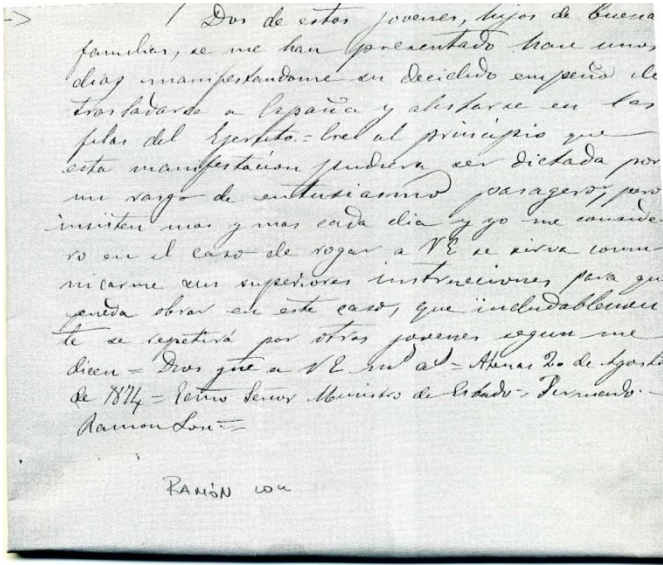 -> / Dos de estos jovenes, hijos de buena
familias, se me han presentado hace unos
dias manifestandome su decidido empeño de
trasladarse a España y alistarse en las
filas del Ejercito = Crei al principio que
esta manifestacion pudiera ser dictada por
un rasgo de entusiasmo pasagero, pero
insisten mas y mas cada dia y yo me conside
ro en el caso de rogar a VE se sirva comu
nicarme sus superiores instrucciones para que
pueda obrar en este caso, que indudablemen
te se repetirá por otros jovenes segun me
dicen = Dios gue a VE ms as = Atenas 20 de Agosto
de 1874 = Exmo Señor Ministro de Estado = Fernando
Ramon Lon =
RAMÓN